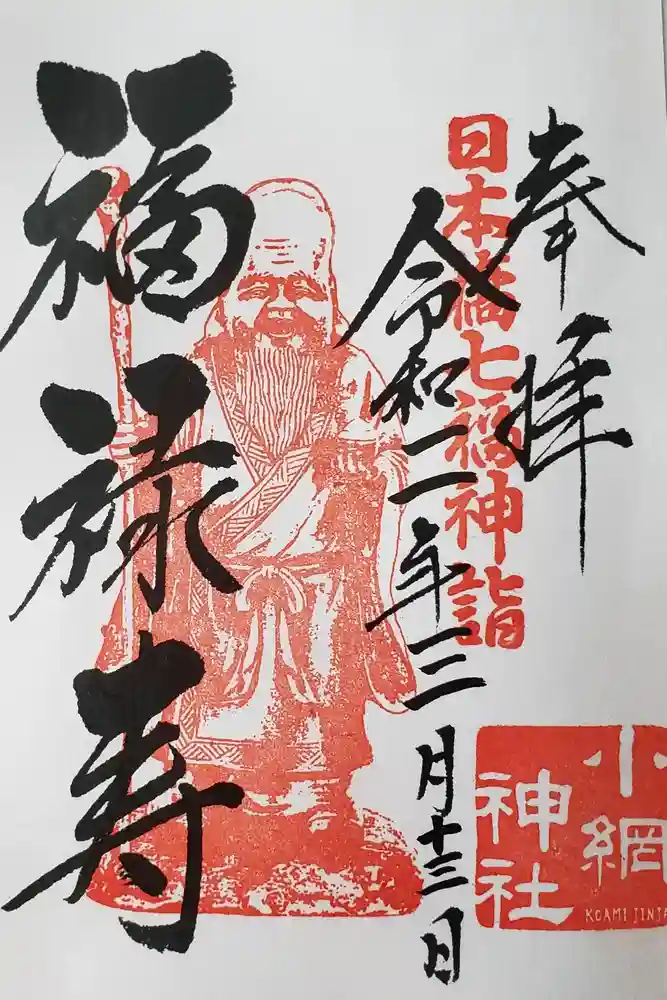 奉拝
日本橋七福神詣
令和二年三月十三日
福禄寿
小網
神社
KOAMI JINJA